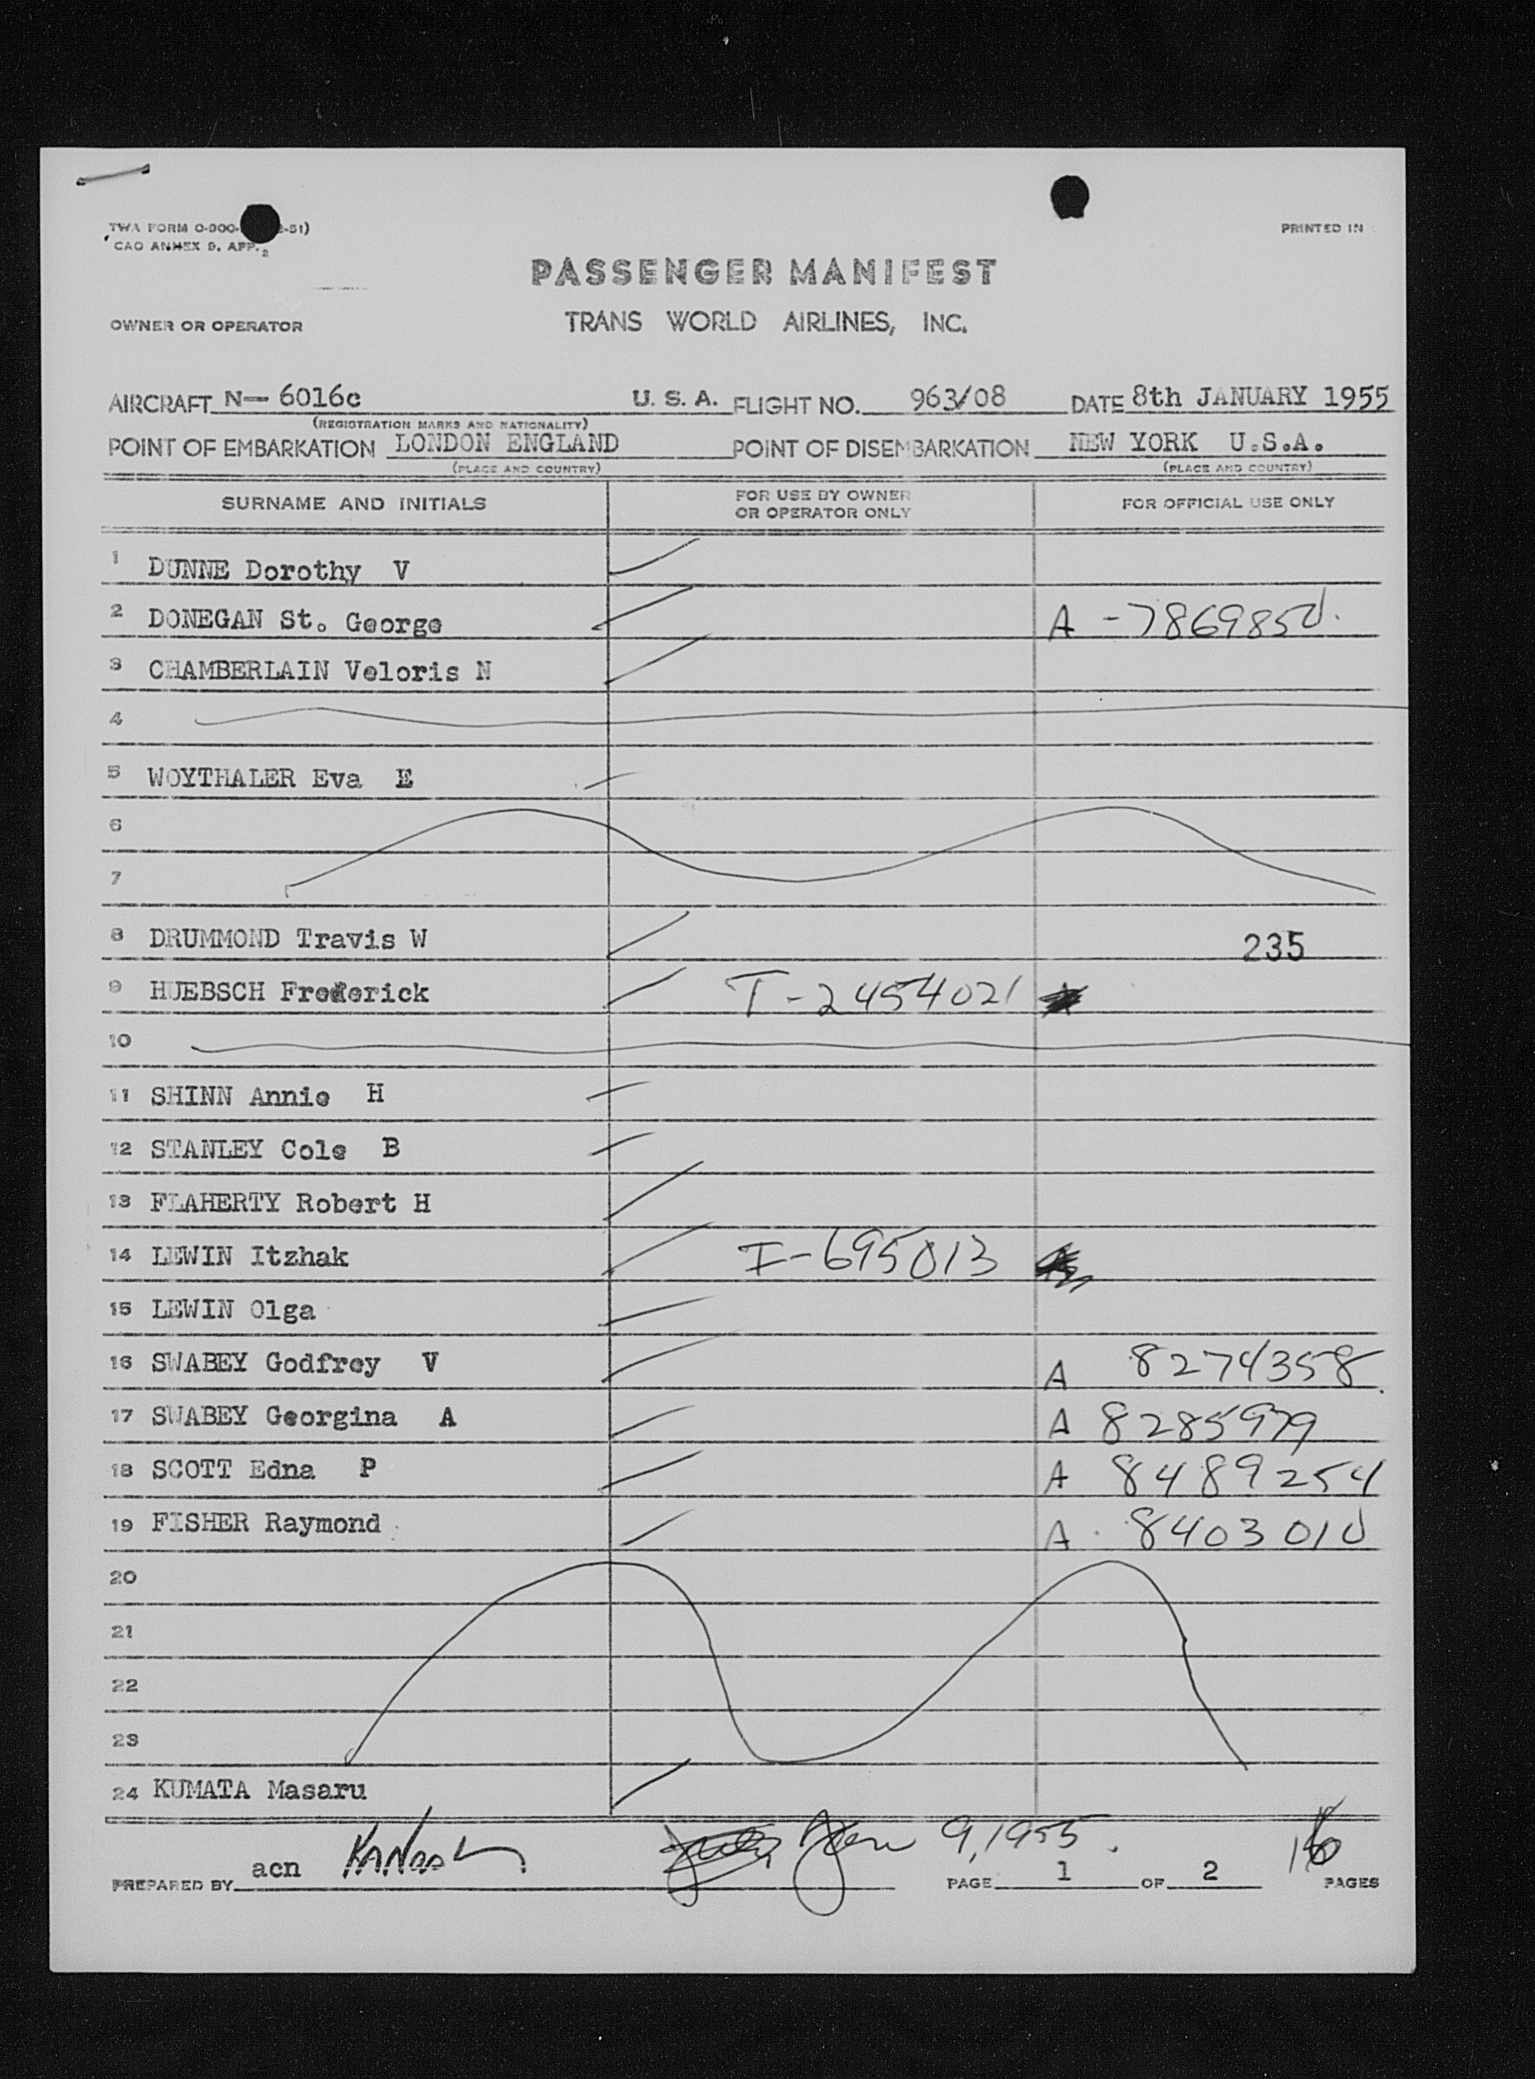 TWA FORM O-900- 2-51)
CAO ANNEX 9. APP. 2
PRINTED IN
PASSENGER MANIFEST
OWNER OR OPERATOR TRANS WORLD AIRLINES, INC.
AIRCRAFT N- 6016c U. S. A. FLIGHT NO. 963/08 DATE 8th JANUARY 1955
(REGISTRATION MARKS AND NATIONALITY)
POINT OF EMBARKATION LONDON ENGLAND POINT OF DISEMBARKATION NEW YORK U.S.A.
(PLACE AND COUNTRY) (PLACE AND COUNTRY)
SURNAME AND INITIALS FOR USE BY OWNER OR OPERATOR ONLY FOR OFFICIAL USE ONLY
1 DUNNE Dorothy V
2 DONEGAN St. George A -7869850.
3 CHAMBERLAIN Veloris N
4
5 WOYTHALER Eva E
6
7
8 DRUMMOND Travis W 235
9 HUEBSCH Frederick T-2454021
10
11 SHINN Annie H
12 STANLEY Cole B
13 FLAHERTY Robert H
14 LEWIN Itzhak I-695013
15 LEWIN Olga
16 SWABEY Godfrey V A 8274358
17 SWABEY Georgina A A 8285979
18 SCOTT Edna P A 8489254
19 FISHER Raymond A 8403010
20
21
22
23
24 KUMATA Masaru
Jan 9, 1955.
PREPARED BY acn PAGE 1 OF 2 PAGES